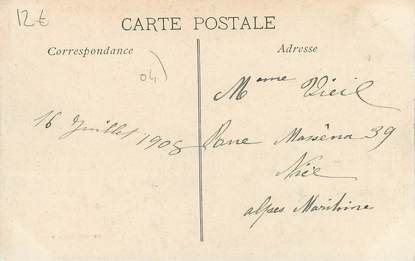 12€
CARTE POSTALE
Correspondance
Adresse
04)
Mme Vieil
16 Juillet 1908
Rue Masséna 39
Nice
alpes Maritime